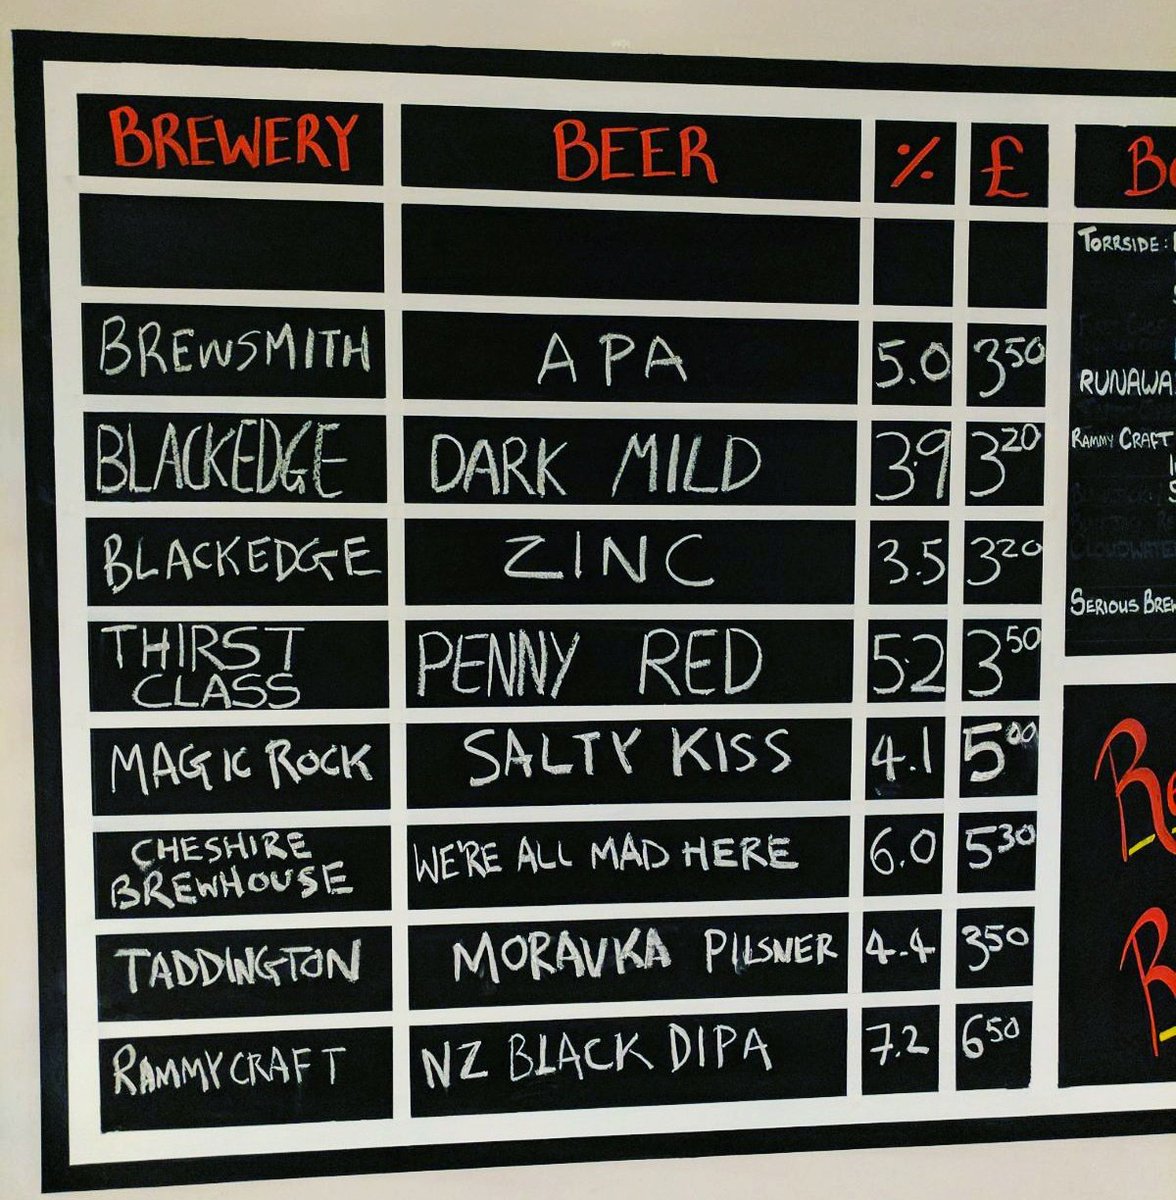 BREWERY BEER % £
BREWSMITH APA 5.0 3.50
BLACKEDGE DARK MILD 3.9 3.20
BLACKEDGE ZINC 3.5 3.20
THIRST CLASS PENNY RED 5.2 3.50
MAGIC ROCK SALTY KISS 4.1 5.00
CHESHIRE BREWHOUSE WE'RE ALL MAD HERE 6.0 5.30
TADDINGTON MORAVKA PILSNER 4.4 3.50
RAMMY CRAFT NZ BLACK DIPA 7.2 6.50
TORRSIDE:
RAMMY CRAFT
CLOUDWATER
SERIOUS